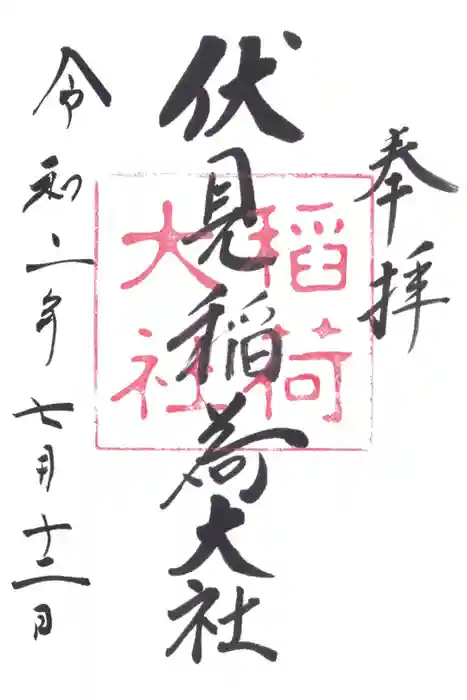 奉拝
伏見稲荷大社
稲荷
大社
令和二年七月十二日